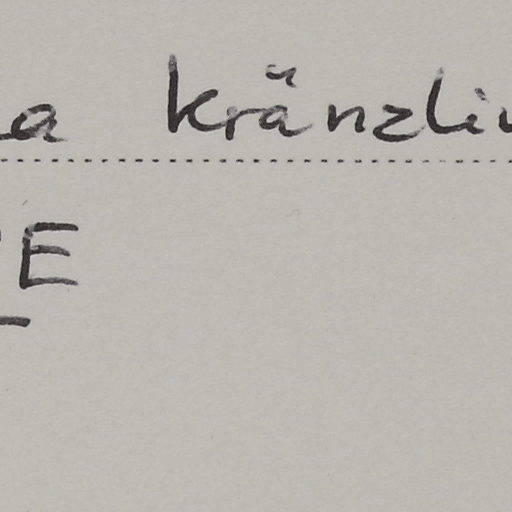 a kränzli
E